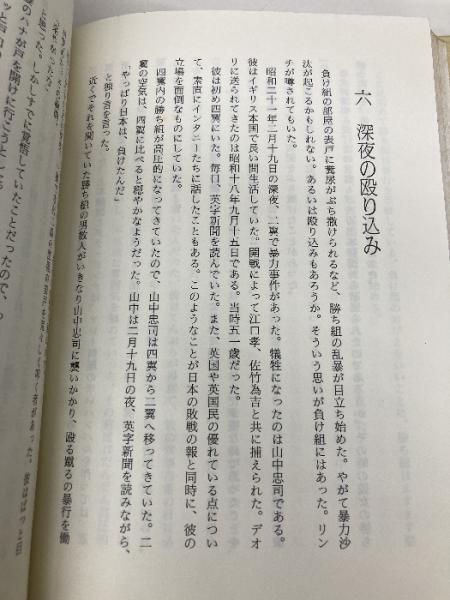 六　深夜の殴り込み
負け組の部屋の表戸に糞尿がぶち撒けられるなど、勝ち組の乱暴が目立ち始めた。やがて暴力沙
汰が起こるかもしれない。あるいは殴り込みもあろうか。そういう思いが負け組にはあった。リン
チが尊されてもいた。
昭和二十一年二月十九日の深夜、二翼で暴力事件があった。犠牲になったのは山中忠司である。
彼はイギリス本国で長い間生活していた。開戦によって江口孝、佐竹為吉と共に捕えられた。デオ
リに送られてきたのは昭和十八年九月十五日である。当時五一歳だった。
彼は初め四翼にいた。毎日、英字新聞を読んでいた。また、英国や英国民の優れている点につい
て、素直にインタニーたちに話したこともある。このようなことが日本の敗戦の報と同時に、彼の
立場を面倒なものにしていた。
四翼内の勝ち組が高圧的になってきていたので、山中忠司は四翼から二翼へ移ってきていた。二
翼の空気は、四翼に比べると穏やかなようだった。山中は二月十九日の夜、英字新聞を読みながら、
「やっぱり日本は、負けたんだ」
と独り言を言った。
近くでそれを聞いていた勝ち組の男数人がいきなり山中忠司に襲いかかり、殴る蹴るの暴行を働